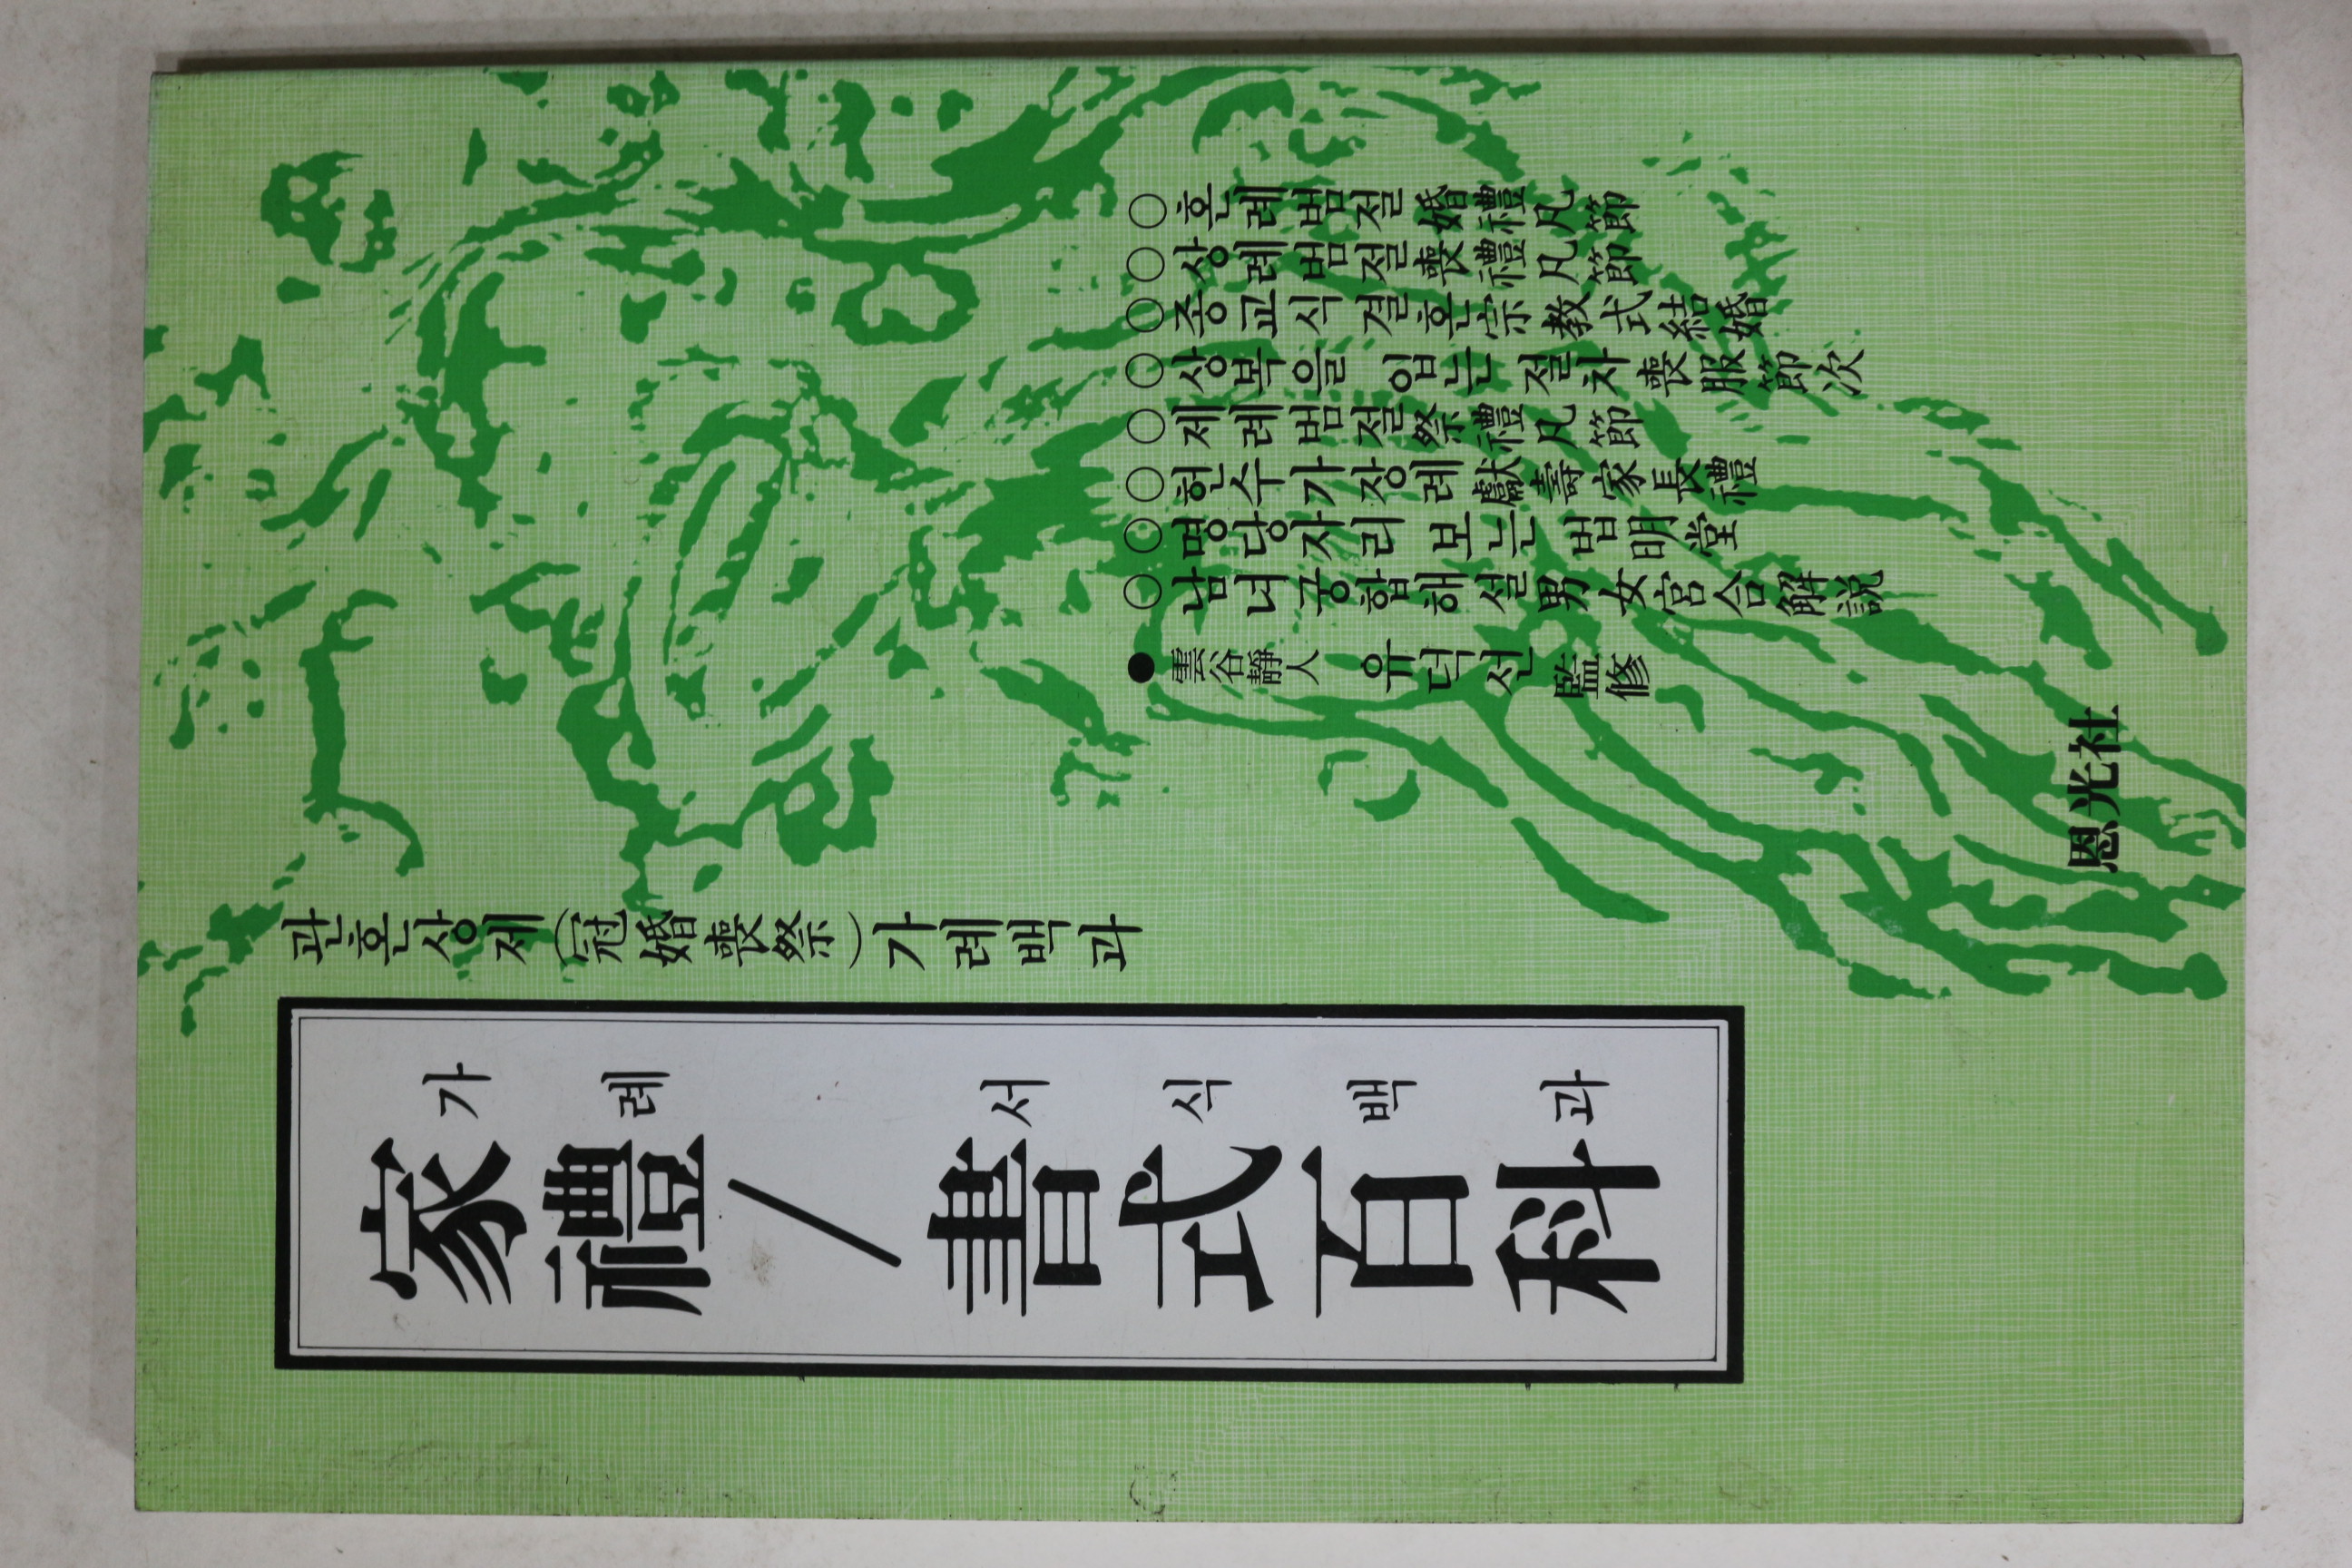 家禮/書式百科
가례 서식백과
관혼상제(冠婚喪祭)가례백과
○혼례범절婚禮凡節
○상례범절喪禮凡節
○종교식 결혼宗教式結婚
○상복을 입는 절차喪服節次
○제례범절祭禮凡節
○헌수가장례獻壽家長禮
○명당자리 보는 법明堂
○남녀궁합해설男女宮合解説
●雲谷靜人 유덕선 監修
恩光社